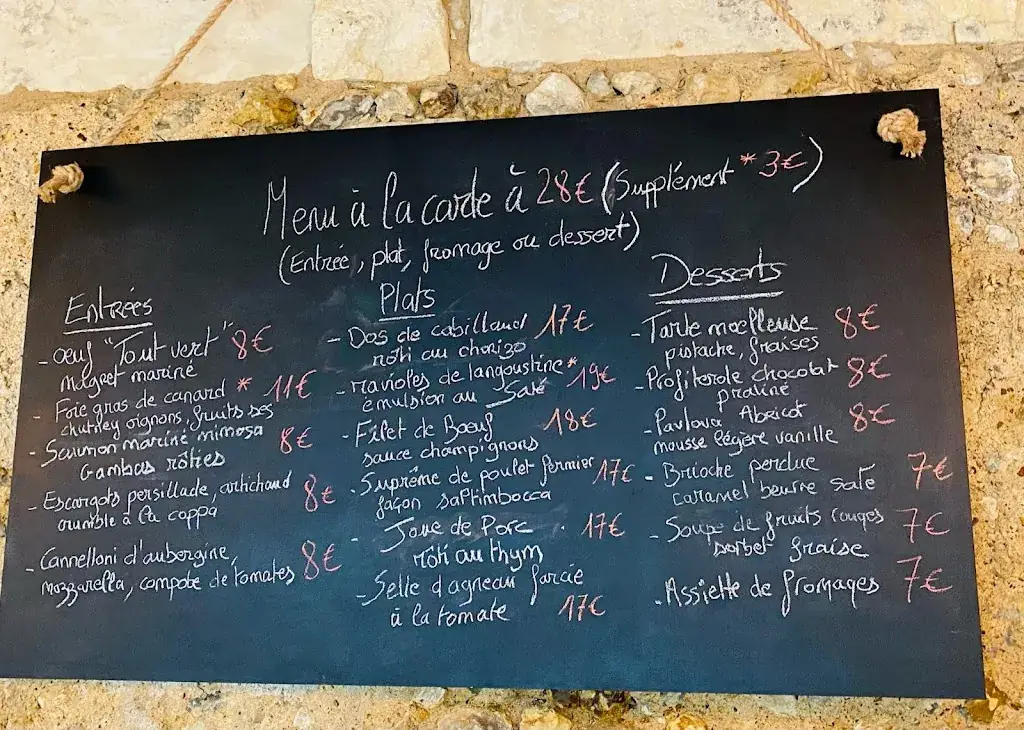 Menu à la carte à 28€ (Supplément * 3€)
(Entrée, plat, fromage ou dessert)
Entrées
- oeuf "Tout vert" 8€
magret mariné
- Foie gras de canard * 11€
chutney oignons, fruits secs
- Saumon mariné, mimosa 8€
Gambas rôties
- Escargots persillade, artichaud 8€
crumble à la coppa
- Cannelloni d'aubergine, 8€
mozzarella, compote de tomates
Plats
- Dos de cabillaud 17€
rôti au chorizo
- ravioles de langoustine * 19€
emulsion au Saté
- Filet de Boeuf 18€
sauce champignons
- Suprême de poulet fermier 17€
façon saltimbocca
- Joue de Porc . 17€
rôti au thym
- Selle d'agneau farcie
à la tomate 17€
Desserts
- Tarte moelleuse 8€
pistache, fraises
- Profiterole chocolat 8€
praliné
- Pavlova Abricot 8€
mousse légère vanille
- Brioche perdue 7€
caramel beurre salé
- Soupe de fruits rouges 7€
sorbet fraise
- Assiette de fromages 7€